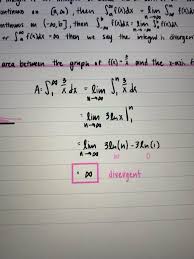 continuous on [a, ∞), then ∫_a^∞ f(x)dx = lim_{n→∞} ∫_a^n f(x)dx
continuous on (-∞, b], then ∫_{-∞}^b f(x)dx = lim_{n→-∞} ∫_n^b f(x)dx
or ∫ f(x)dx = ∞ then we say the integral is divergent
area between the graph of f(x) = 3/x and the x-axis
A: ∫_1^∞ 3/x dx = lim_{n→∞} ∫_1^n 3/x dx
= lim_{n→∞} 3lnx |_1^n
= lim_{n→∞} 3ln(n) - 3ln(1)
∞ 0
= ∞ divergent